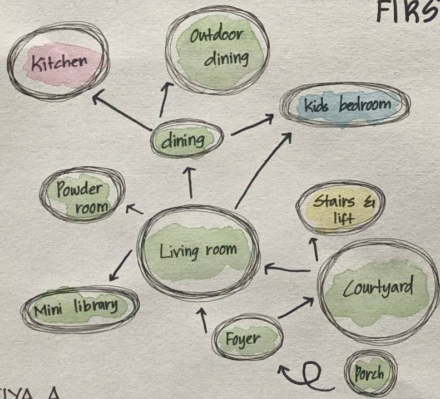 FIRS
Outdoor
dining
Kitchen
Kids bedroom
dining
Powder
room
Stairs &
lift
Living room
Courtyard
Mini library
Foyer
Porch
TIYA A